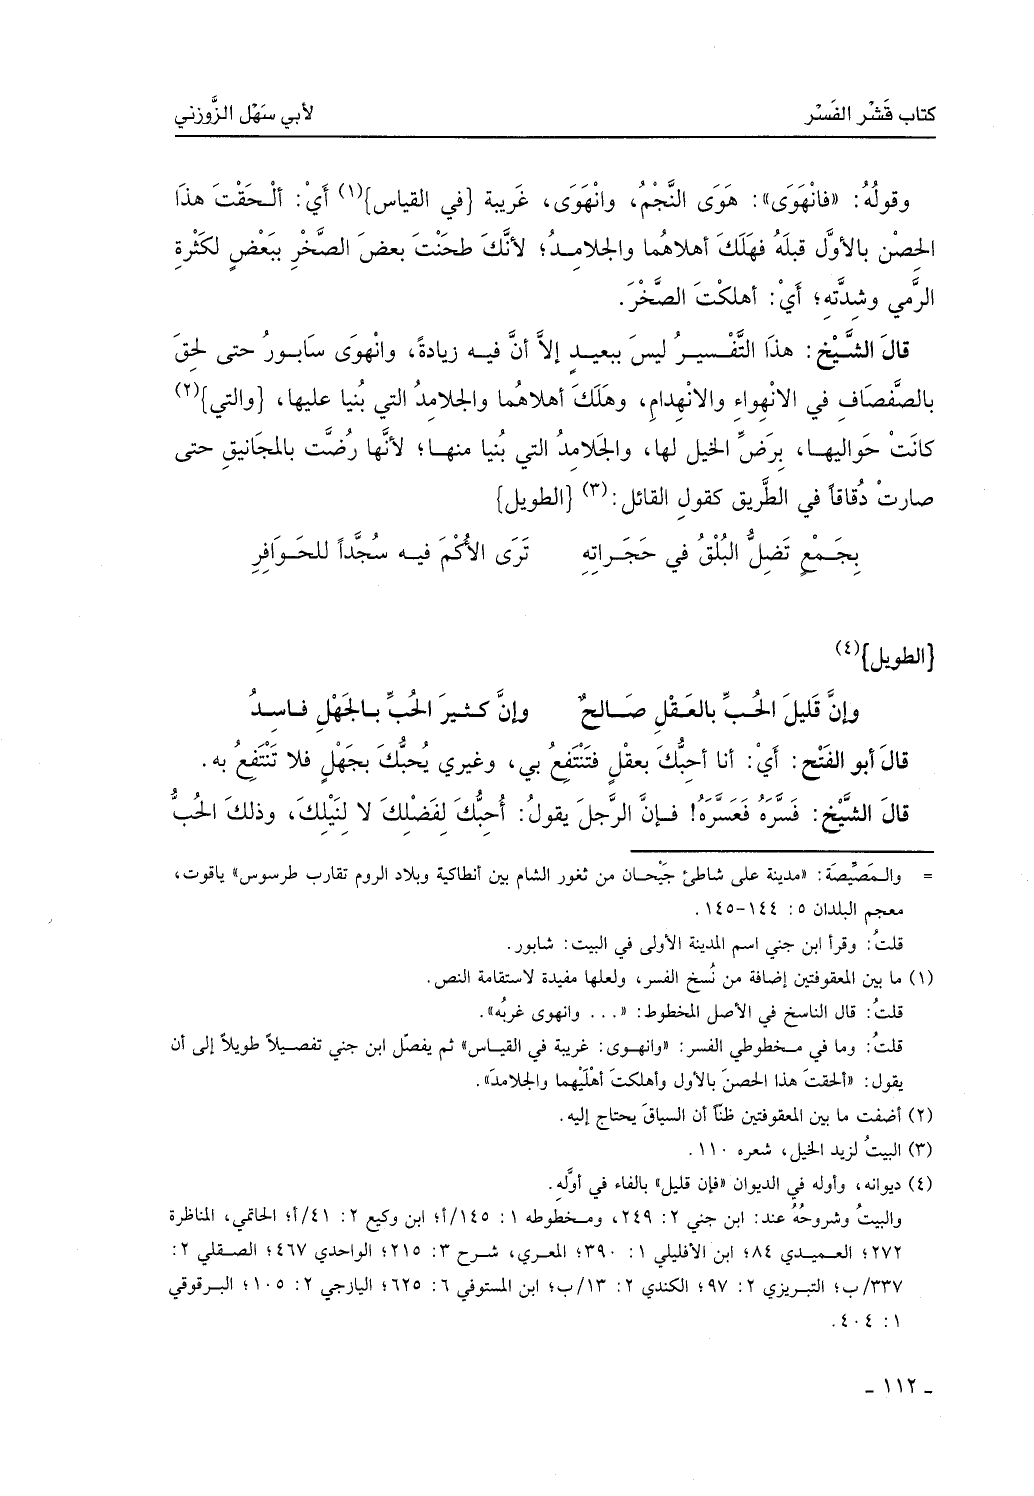 كتاب قَشْر الفَسْر لأبي سَهْل الزَّوزني
وقولُهُ: «فانْهَوَى»: هَوَى النَّجْمُ، وانْهَوَى، غَريبة {في القياس}(١) أَيْ: ألْحَقْتَ هذَا
الحِصْن بالأوَّل قبلَهُ فهَلَكَ أهلاهُما والجلامدُ؛ لأنَّكَ طحَنْتَ بعضَ الصَّخْرِ ببَعْضٍ لكثرةِ
الرَّمي وشِدَّتهِ؛ أَيْ: أهلكْتَ الصَّخْرَ.
قالَ الشَّيْخ: هذَا التَّفْسيرُ ليسَ ببعيدٍ إلاَّ أنَّ فيه زيادةً، وانْهوَى سَابورُ حتى لحِقَ
بالصَّفصَافِ في الانْهِواءِ والانْهِدامِ، وهَلَكَ أهلاهُما والجلامدُ التي بُنيا عليها، {والتي}(٢)
كانَتْ حَواليها، برَضِّ الخيل لها، والجَلامدُ التي بُنيا منها؛ لأنَّها رُضَّت بالمجانيقِ حتى
صارتْ دُقاقاً في الطَّريق كقولِ القائل:(٣) {الطويل}
بِجَمْعٍ تَضِلُّ البُلْقُ في حَجَراتِهِ تَرَى الأُكْمَ فيه سُجَّداً للحَوَافِرِ
{الطويل}(٤)
وإنَّ قَليلَ الحُبِّ بالعَقْلِ صَالحٌ وإنَّ كثيرَ الحُبِّ بالجَهْلِ فاسدُ
قالَ أبو الفَتْح: أَيْ: أنا أحبُّكَ بعقْلٍ فتَنْتَفعُ بي، وغيري يُحبُّكَ بجَهْلٍ فلا تَنْتَفِعُ به.
قالَ الشَّيْخ: فَسَّرَهُ فَعَسَّرَهُ! فإنَّ الرَّجلَ يقولُ: أُحبُّكَ لفَضْلِكَ لا لنَيْلِكَ، وذلكَ الحُبُّ
= والمَصِّيْصَة: «مدينة على شاطئ جَيْحان من ثغور الشام بين أنطاكية وبلاد الروم تقارب طرسوس» ياقوت،
معجم البلدان ٥: ١٤٤-١٤٥.
قلتُ: وقرأ ابن جني اسم المدينة الأولى في البيت: شابور.
(١) ما بين المعقوفتين إضافة من نُسخ الفسر، ولعلها مفيدة لاستقامة النص.
قلتُ: قال الناسخ في الأصل المخطوط: «... وانهوى غربُه».
قلتُ: وما في مخطوطي الفسر: «وانهوى: غريبة في القياس» ثم يفصّل ابن جني تفصيلاً طويلاً إلى أن
يقول: «ألحقتَ هذا الحصنَ بالأول وأهلكتَ أهْلَيْهما والجلامدَ».
(٢) أضفت ما بين المعقوفتين ظنّاً أن السياقَ يحتاج إليه.
(٣) البيتُ لزيد الخيل، شعره ١١٠.
(٤) ديوانه، وأوله في الديوان «فإن قليل» بالفاء في أوَّله.
والبيتُ وشروحُهُ عند: ابن جني ٢: ٢٤٩، ومخطوطه ١: ١٤٥/أ؛ ابن وكيع ٢: ٤١/أ؛ الحاتمي، المناظرة
٢٧٢؛ العميدي ٨٤؛ ابن الأفليلي ١: ٣٩٠؛ المعري، شرح ٣: ٢١٥؛ الواحدي ٤٦٧؛ الصقلي ٢:
٣٣٧/ب؛ التبريزي ٢: ٩٧؛ الكندي ٢: ١٣/ب؛ ابن المستوفي ٦: ٦٢٥؛ اليازجي ٢: ١٠٥؛ البرقوقي
١: ٤٠٤.
- ١١٢ -